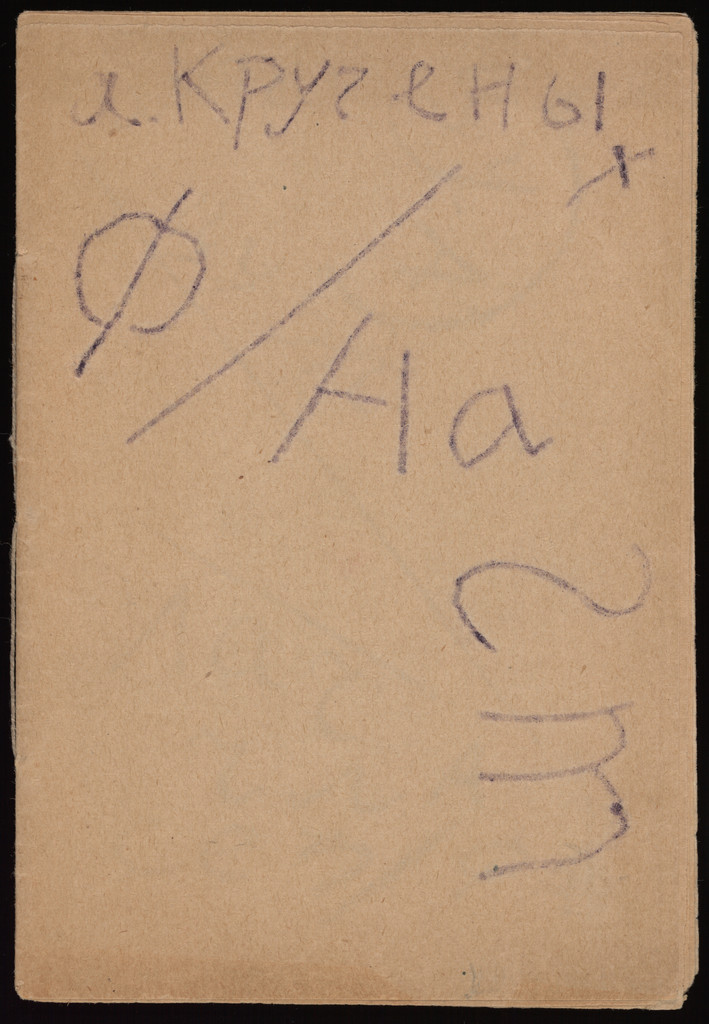 А. Крученых
Ф/На
гт